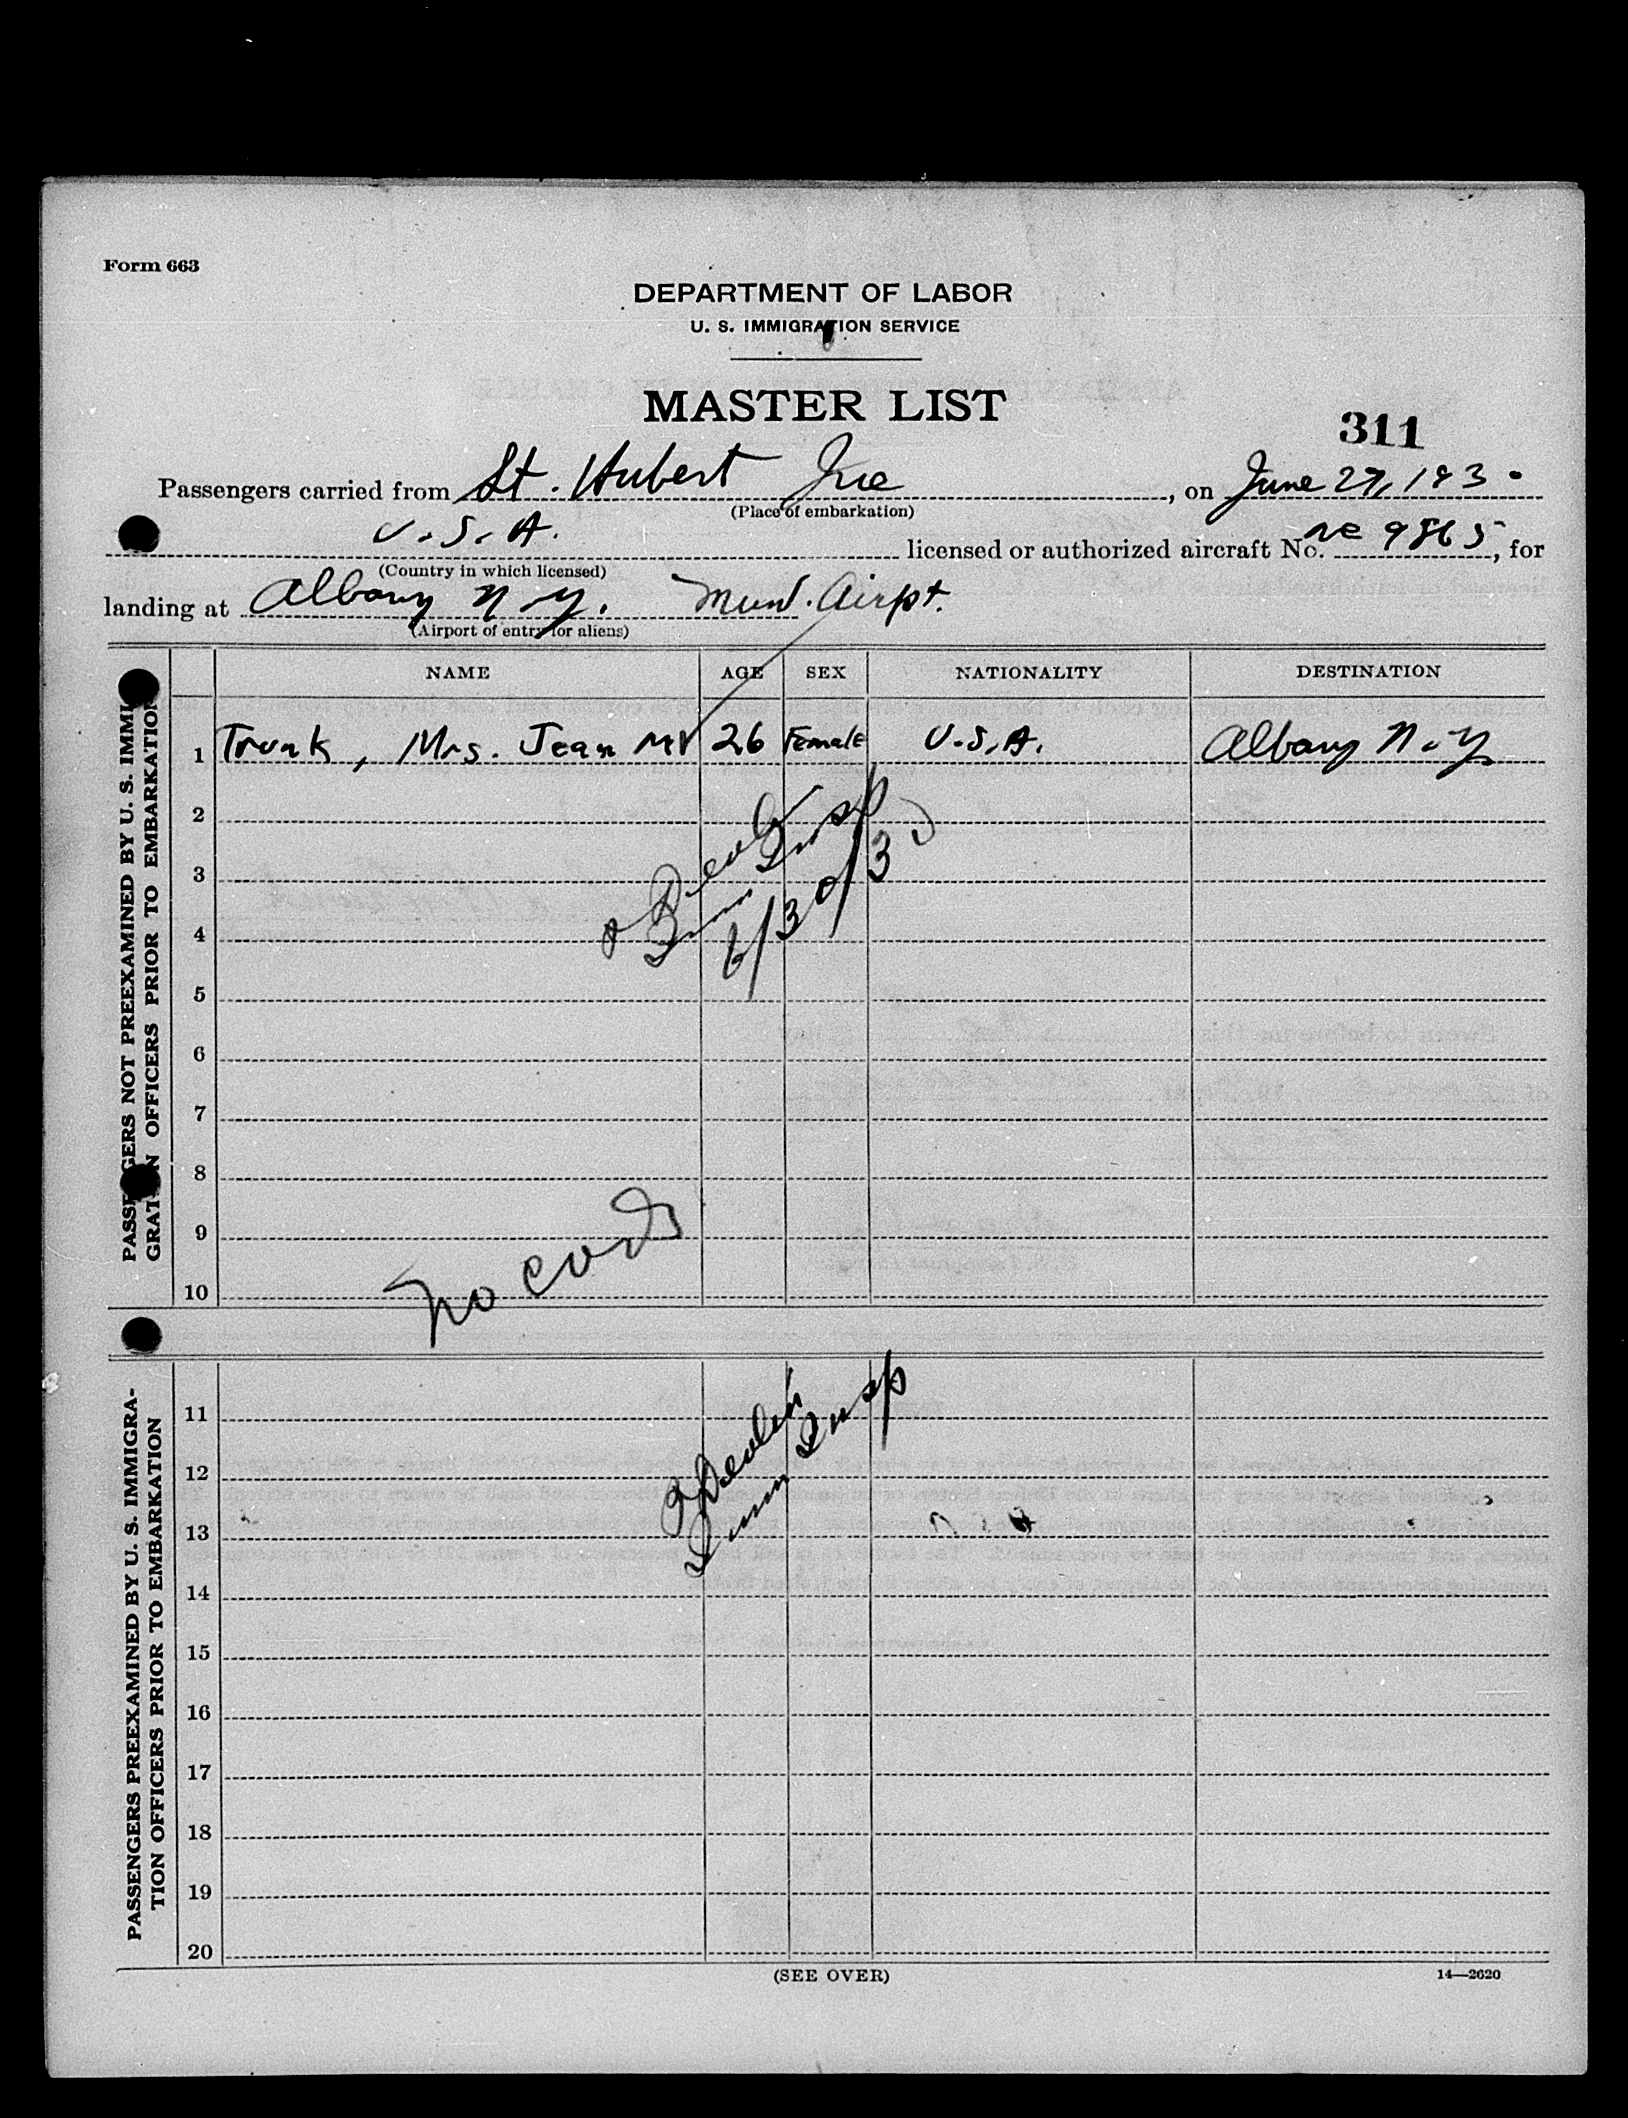 Form 663
DEPARTMENT OF LABOR
U. S. IMMIGRATION SERVICE
MASTER LIST
311
Passengers carried from St. Hubert Que, on June 27, 193 0
(Place of embarkation)
U.S.A. licensed or authorized aircraft No. NC 9865, for
(Country in which licensed)
landing at Albany N.Y. Mun. Airpt.
(Airport of entry for aliens)
NAME AGE SEX NATIONALITY DESTINATION
PASSENGERS NOT PREEXAMINED BY U. S. IMMI
GRATION OFFICERS PRIOR TO EMBARKATION
1 Trunk, Mrs. Jean 26 Female U.S.A. Albany N.Y.
2
3
4
Devlin
Imm Insp
6/30/30
5
6
7
8
9
10
No cards
PASSENGERS PREEXAMINED BY U. S. IMMIGRA-
TION OFFICERS PRIOR TO EMBARKATION
11
12
13
Devlin
Imm Insp
14
15
16
17
18
19
20
(SEE OVER)
14—2620